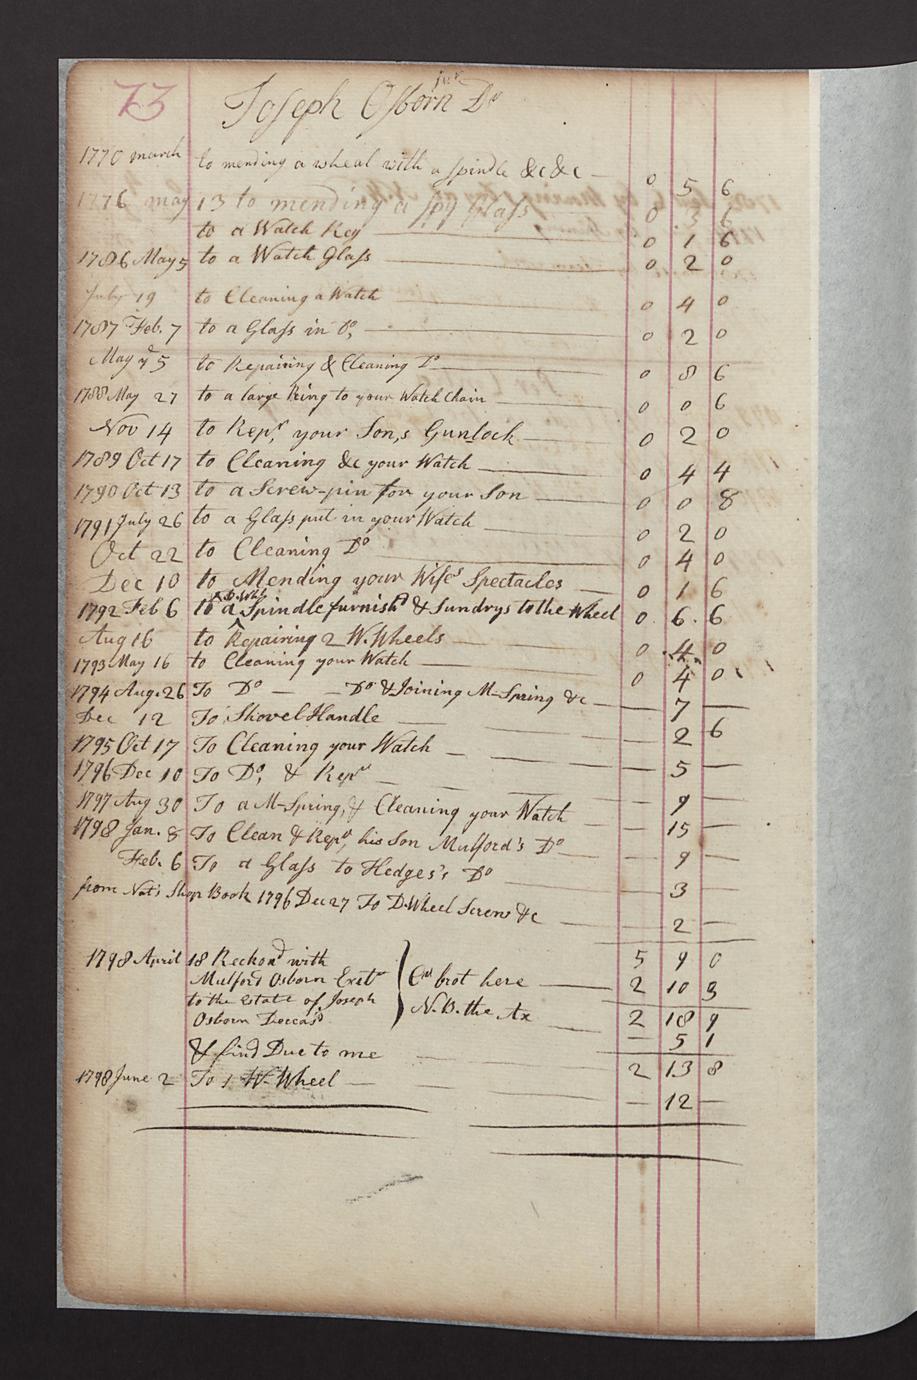 73
Joseph Osborn junr Dr
1770 march to mending a wheal with a spindle &c &c 0 5 6
1776 may 13 to mending a spy glass 0 3 6
to a Watch Key 0 1 6
1786 May 5 to a Watch Glass 0 2 0
July 19 to Cleaning a Watch 0 4 0
1787 Feb. 7 to a Glass in Do, 0 2 0
May 5 to Repairing & Cleaning Do 0 8 6
1788 May 27 to a large Ring to your Watch Chain 0 0 6
Nov 14 to Repg, your Son,s Gunlock 0 2 0
1789 Oct 17 to Cleaning &c your Watch 0 4 4
1790 Oct 13 to a Screw-pin for your Son 0 0 8
1791 July 26 to a Glass put in your Watch 0 2 0
Oct 22 to Cleaning Do 0 4 0
Dec 10 to Mending your Wife's Spectacles 0 1 6
1792 Feb 6 to a Spindle furnishd & Sundrys to the Wheel 0 6 6
Aug 16 to Repairing 2 W. Wheels 0 4 0
1793 May 16 to Cleaning your Watch 0 4 0
1794 Aug. 26 To Do — — Do & Joining M-Spring &c — 7 —
Dec 12 To Shovel Handle 2 6
1795 Oct 17 To Cleaning your Watch — 5 —
1796 Dec 10 To Do, & Repg — 9 —
1797 Aug 30 To a M-Spring, & Cleaning your Watch — 15 —
1798 Jan. 8 To Clean & Repg, his Son Mulford's Do — 9 —
Feb. 6 To a Glass to Hedges's Do — 3 —
from Nat's Shop Book 1796 Dec 27 To D-Wheel Screw &c — 2 —
5 9 0
1798 April 18 Reckond with
Mulford Osborn Exetr } Crt brot here 2 10 3
to the Estate of Joseph } N.B. the Ax 2 18 9
Osborn Deceasd — 5 1
& find Due to me 2 13 8
1798 June 2 To 1 W. Wheel — 12 —